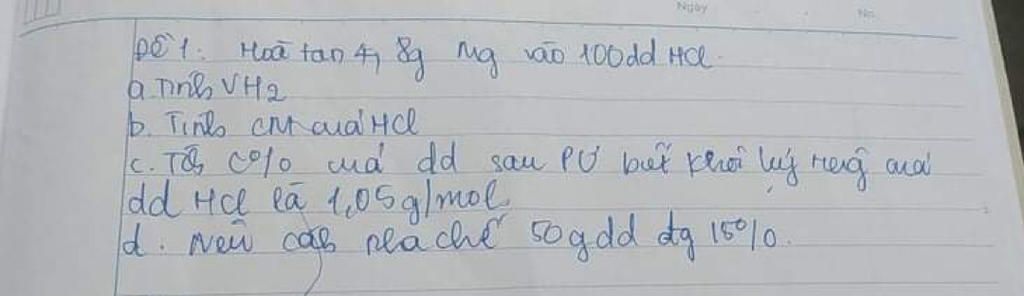 Ngày
No.
Đề 1: Hoà tan 4,8g Mg vào 100dd HCl.
a. Tính VH2
b. Tính CM của HCl
c. Tính C% của dd sau PƯ biết khối lg riêng của
dd HCl là 1,05g/mol.
d. Nêu cách pha chế 50g dd đg 15%.